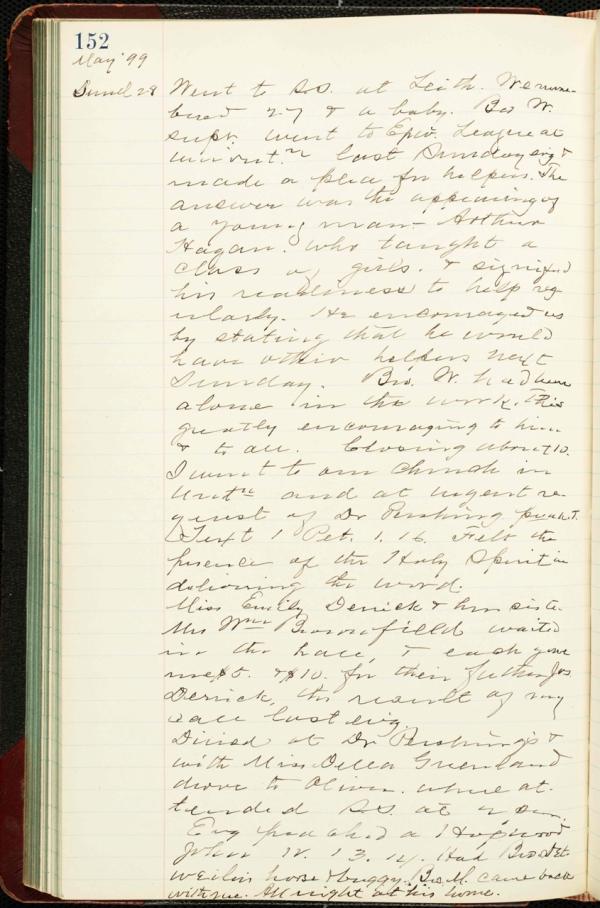 152
May '99
Sund 28 Went to S.S. at Leith. We num-
bered 27 & a baby. Bro W.
supt. went to Epw. League at
last Sunday evg &
made a plea for helpers. The
answer was the appearing of
a young man - Arthur
Hagan. who taught a
class of girls. & signified
his readiness to help reg
ularly. He encouraged us
by stating that he would
have other helpers next
Sunday. Bro. W. had been
alone in the work. This
greatly encouraging to him
& to all. Closing about 10.
I went to our Church in
and at urgent re-
quest of Dr Pershing preacht.
Text 1 Pet. 1.16. Felt the
presence of the Holy Spirit in
delivering the word.
Miss Emily Derrick & her siste.
Mrs Wm Brownfield waited
in the hall, & each gave
me $5. & $10. for their father Jas
Derrick, the result of my
call last evg.
Dined at Dr Pershing's &
with Miss Della Greenland
drove to Oliver. where at-
tended S.S. at 2
Evg preached a Hopwood
John 12. 13. 14. Had Bro
horse & buggy. Bro M. came back
with me. All night at his home.